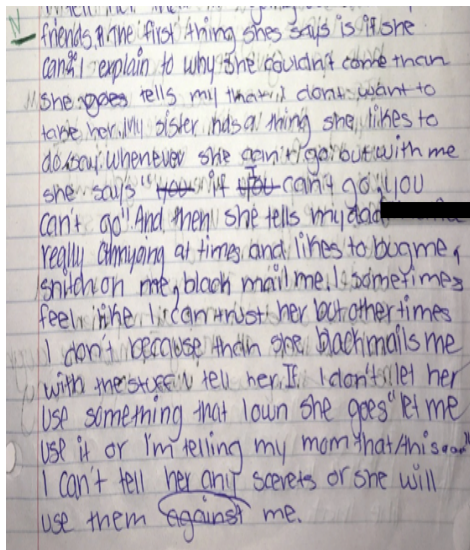 N
friends, the first thing shes says is if she
can. I explain to why she couldn't come than
she goes tells my that I dont want to
take her. My sister has a thing she likes to
do/say whenever she can't go out with me
she says "you if you can't go, you
can't go" And then she tells my dad
really annoying at times and likes to bug me,
snitch on me, black mail me. I sometimes
feel like I can trust her but other times
I don't because than she blackmails me
with the stuff I tell her. If I don't let her
use something that I own she goes "let me
use it or I'm telling my mom that/this
I can't tell her any secrets or she will
use them against me.